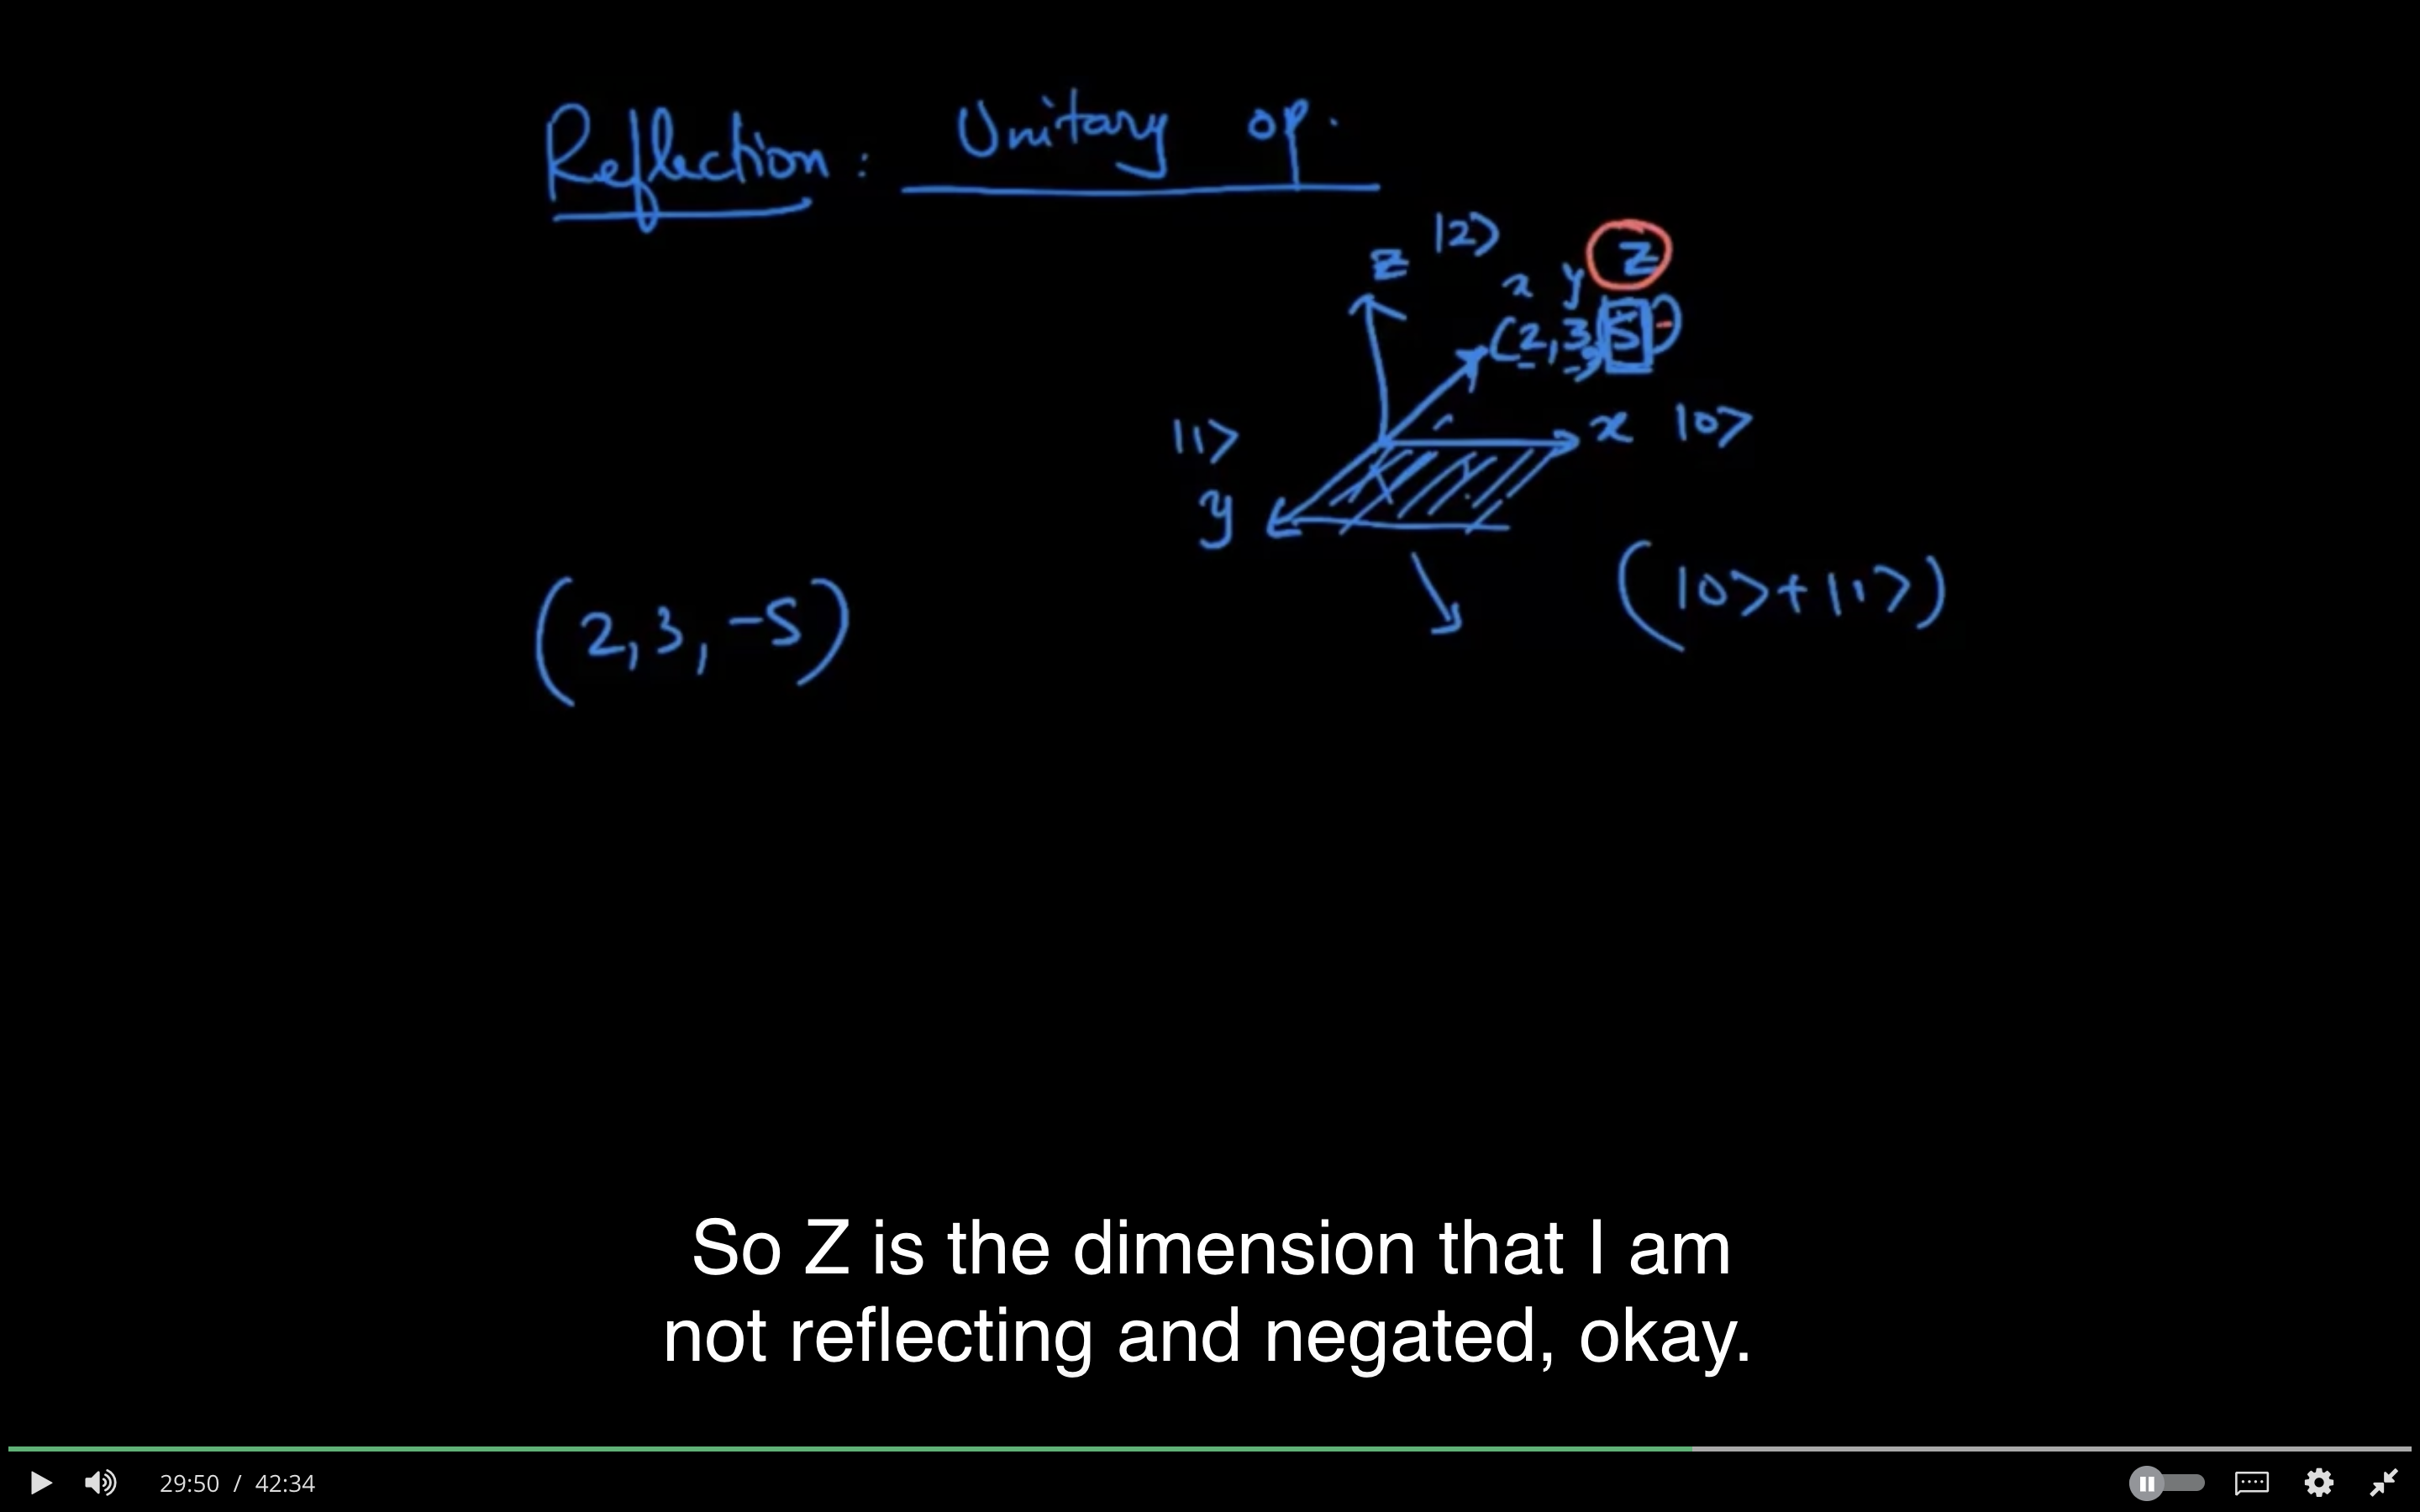 Reflection: Unitary op.
z |2⟩
x y z
(2, 3, 5)
-
|1⟩
x |0⟩
y
(2, 3, -5)
(|0⟩ + |1⟩)
So Z is the dimension that I am
not reflecting and negated, okay.
29:50 / 42:34